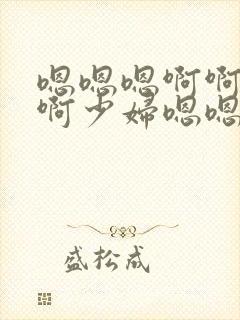 嗯嗯嗯啊啊
啊少妇嗯嗯
盛松成